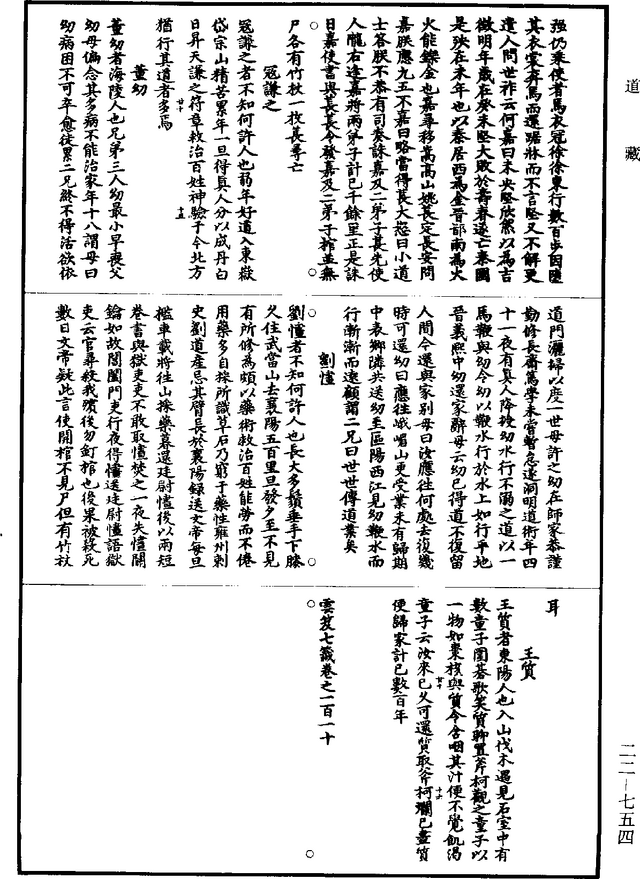 道藏
强仍乘使者馬衣冠徐徐東行數百步因墮
其衣裳奔馬而還踞牀而不言堅又不解更
遣人問世祚云何嘉曰未央堅欣然以為吉
徵明年歲在癸未堅大敗於壽春遂亡秦國
是殃在未年也以秦居西為金晉都南為火
火能鑠金也嘉尋移嵩高山姚萇定長安問
嘉朕應九五不嘉曰略當得萇大怒曰小道
士答朕不恭有司奏誅嘉及二弟子萇先使
人隴右逢嘉將兩弟子計已千餘里正是誅
日嘉使書與萇萇令發嘉及二弟子棺並無
尸各有竹杖一枚萇尋亡
寇謙之
寇謙之者不知何許人也弱年好道入東嶽
岱宗山精苦累年一旦得真人分以成丹白
日昇天謙之符章救治百姓神驗于今北方
猶行其道者多焉
董幼
董幼者海陵人也兄弟三人幼最小早喪父
幼母偏念其多病不能治家年十八謂母曰
幼病困不可卒愈徒累二兄終不得活欲依
道門灑掃以度一世母許之幼在師家恭謹
勤修長齋篤學未嘗暫怠遂洞明道術年四
十一夜有真人降授幼水行不溺之道以一
馬鞭與幼令幼以鞭水行於水上如行平地
晉義熙中幼還家辭母云幼已得道不復留
人間今還與家別母曰汝應往何處去復幾
時可還幼曰應往峨嵋山更受業未有歸期
中表鄉隣共送幼至區陽西江見幼鞭水而
行漸漸而遠顧謂二兄曰世世傳道業矣
劉㦸
劉㦸者不知何許人也長大多鬚垂手下膝
久住武當山去襄陽五百里旦發夕至不見
有所修為頗以藥術救治百姓能勞而不倦
用藥多自採所識草石乃窮于藥性雍州刺
史劉道產忌其臂長於襄陽錄送文帝每旦
檻車載將往山採藥暮還廷尉㦸後以兩短
卷書與獄吏吏不敢取㦸焚之一夜失㦸關
鑰如故閶闔門吏行夜得㦸送廷尉㦸語獄
吏云官尋殺我殯後勿釘棺也後果被殺死
數日文帝疑此言使開棺不見尸但有竹杖
耳
王質
王質者東陽人也入山伐木遇見石室中有
數童子圍碁歌笑質聊置斧柯觀之童子以
一物如棗核與質令含咽其汁便不覺飢渴
童子云汝來已久可還質取斧柯爛已盡質
便歸家計已數百年
雲笈七籤卷之一百一十
二二—七五四